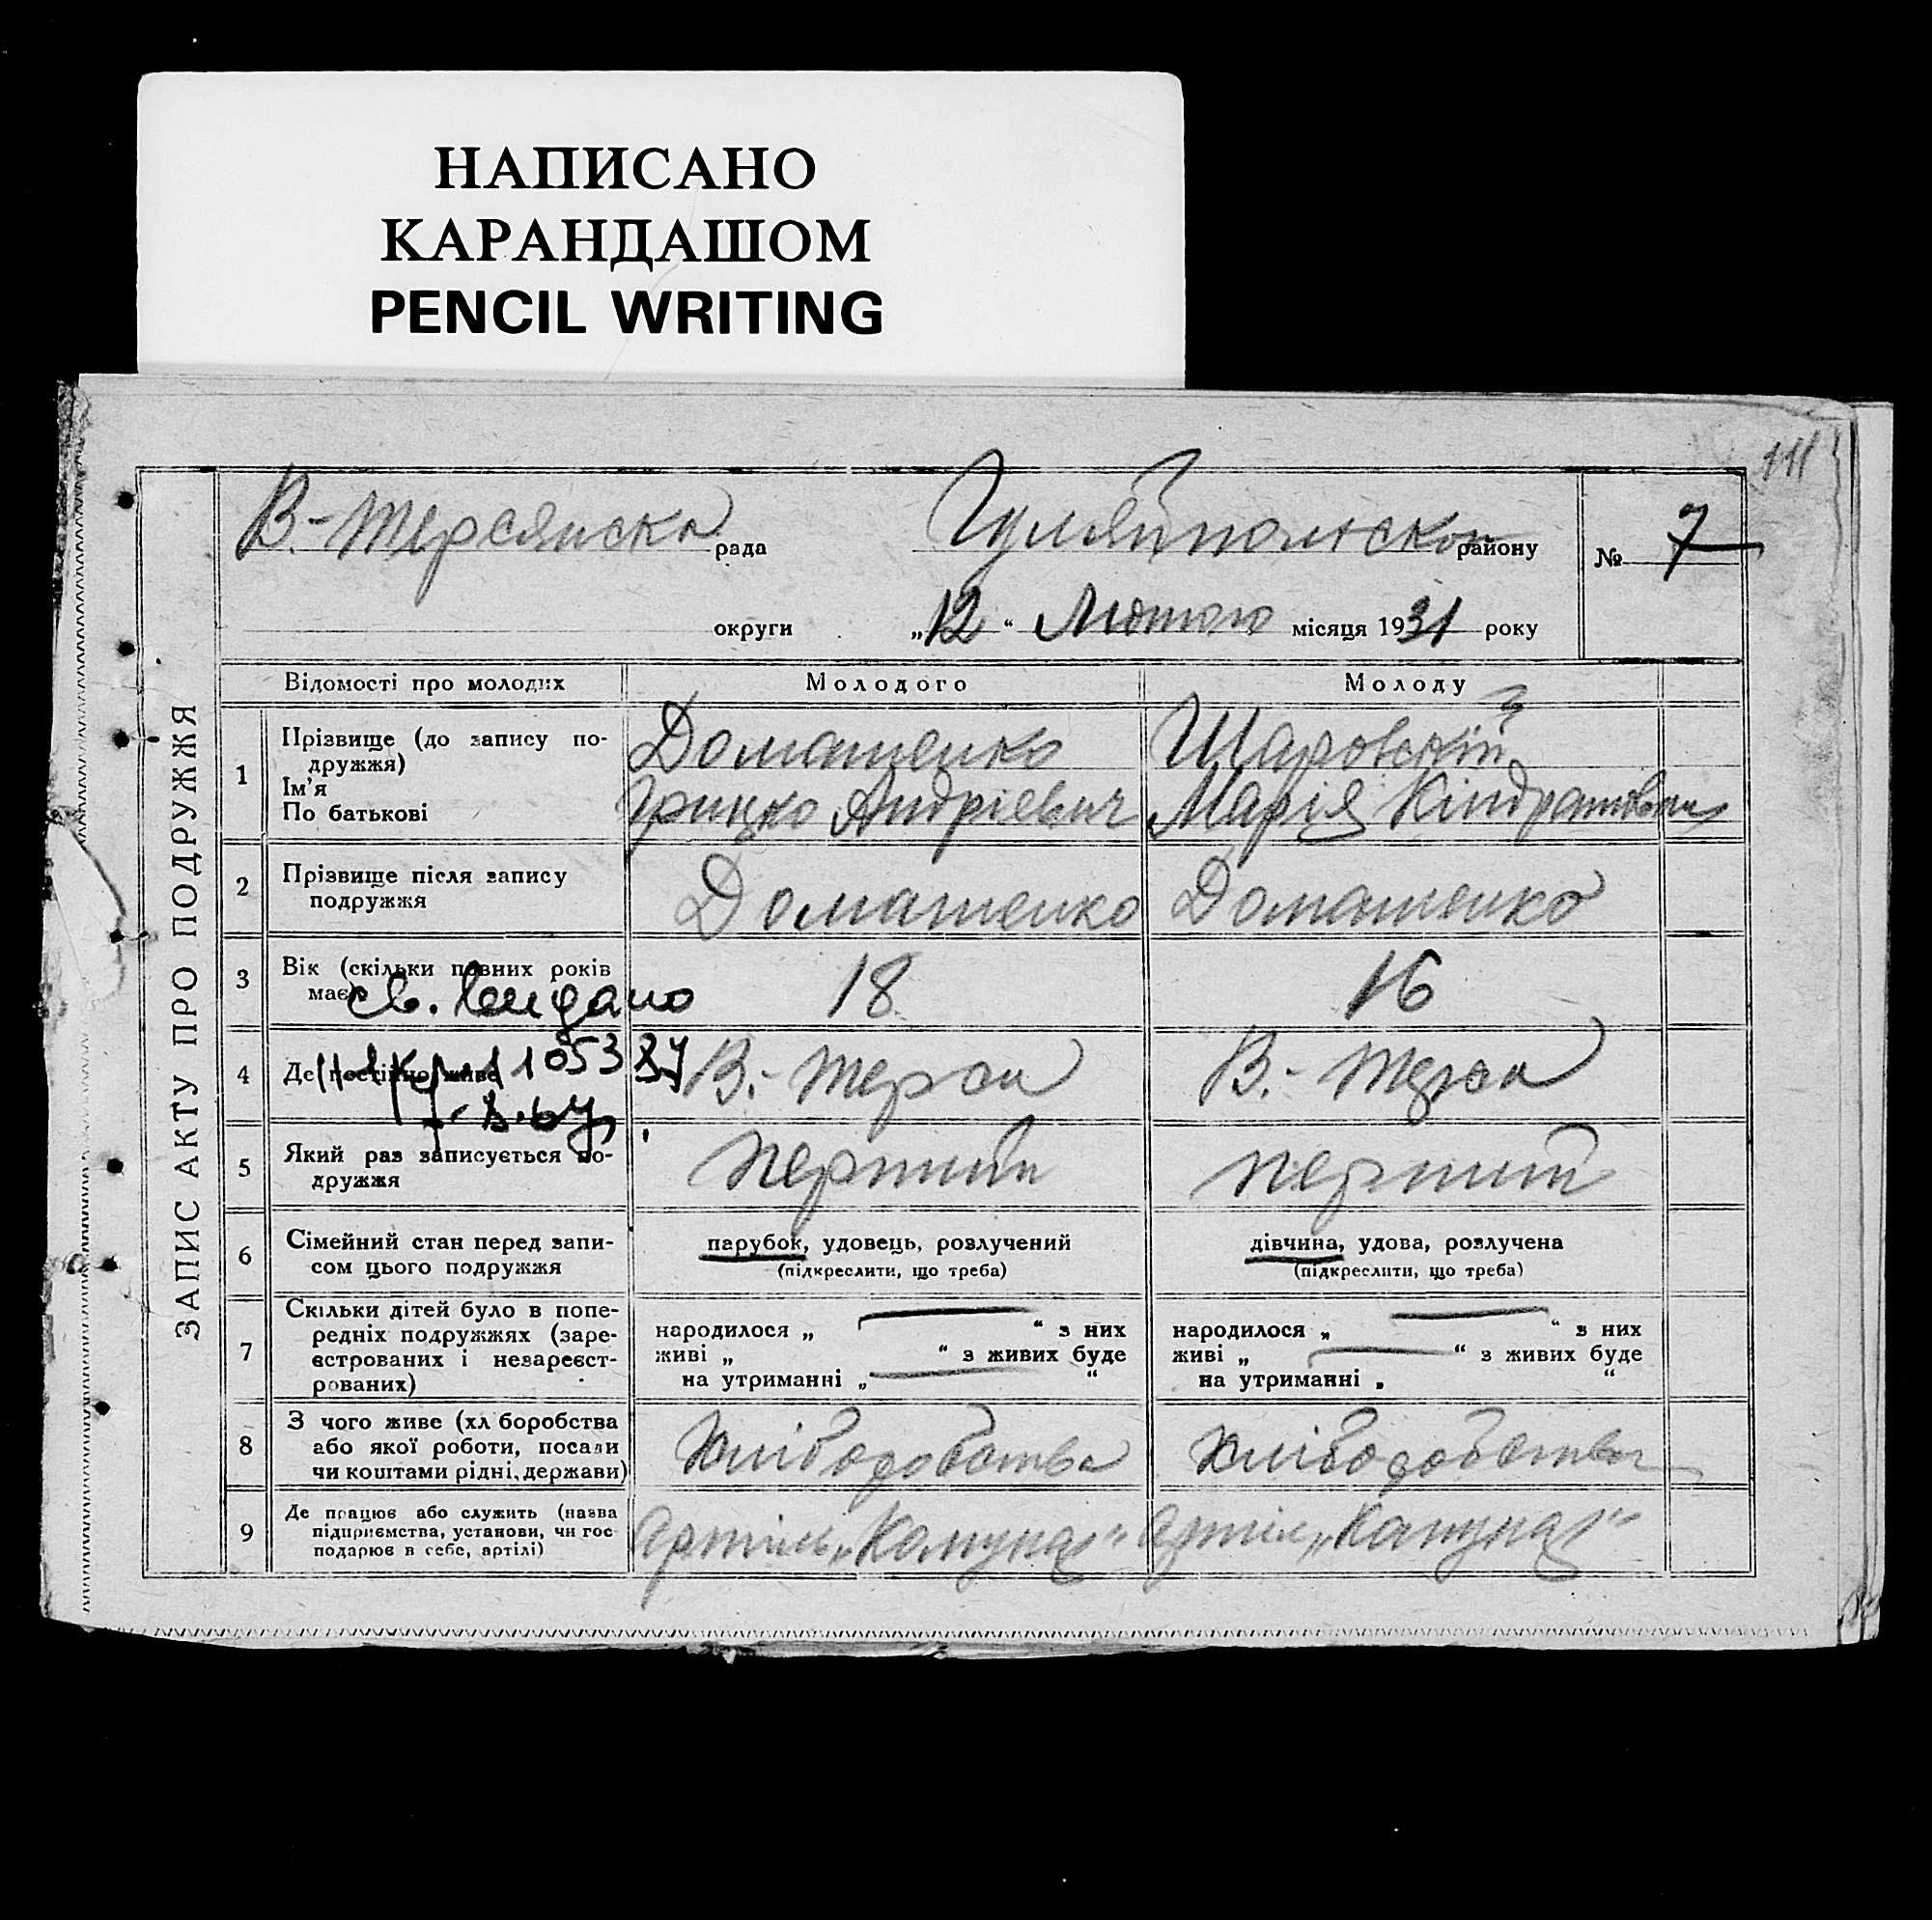 НАПИСАНО
КАРАНДАШОМ
PENCIL WRITING
111
ЗАПИС АКТУ ПРО ПОДРУЖЖЯ
В.-Терсянска рада Гуляйпольского району № 7
округи „12“ Лютого місяця 1931 року
Відомості про молодих Молодого Молоду
1 Прізвище (до запису по-
дружжя)
Ім’я
По батькові
Домашенко
Грицко Андріевич
Шаровскій
Марія Кіндратовна
2 Прізвище після запису
подружжя
Домашенко Домашенко
3 Вік (скільки повних років
має)
18 16
св. выдано
4 Де постійно живе В.-Терса В.-Терса
5 Який раз записується по-
дружжя
перший перший
6 Сімейний стан перед запи-
сом цього подружжя
парубок, удовець, розлучений
(підкреслити, що треба)
дівчина, удова, розлучена
(підкреслити, що треба)
7 Скільки дітей було в попе-
редніх подружжях (заре-
єстрованих і незареєст-
рованих)
народилося „ “ з них
живі „ “ з живих буде
на утриманні „ “
народилося „ “ з них
живі „ “ з живих буде
на утриманні „ “
8 З чого живе (хл боробства
або якої роботи, посади
чи коштами рідні, держави)
хліборобства хліборобства
9 Де працює або служить (назва
підприємства, установи, чи гос-
подарює в себе, артілі)
Артіль „Комуна“ Артіль „Комуна“